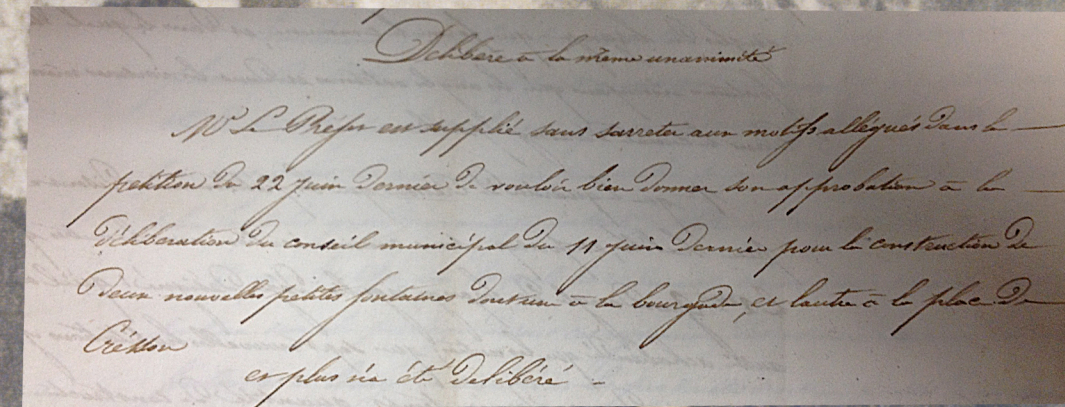 Delibère à la même unanimité
Mr Le Préfet est supplié sans sarreter aux motifs allégués dans la
petition du 22 juin dernier de vouloir bien donner son approbation à la
déliberation du conseil municipal du 11 juin dernier pour la construction de
deux nouvelles petites fontaines dont une à la bourgade, et lautre à la place de
et plus n'a été delibéré